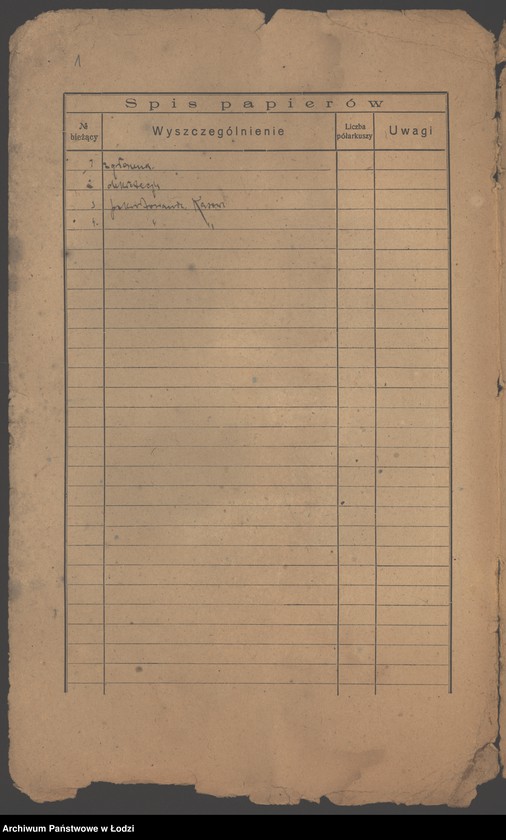 1
Spis papierów
№ bieżący Wyszczególnienie Liczba półarkuszy Uwagi
1 zgłoszenia
2
3 Kasowe
4. " "
Archiwum Państwowe w Łodzi